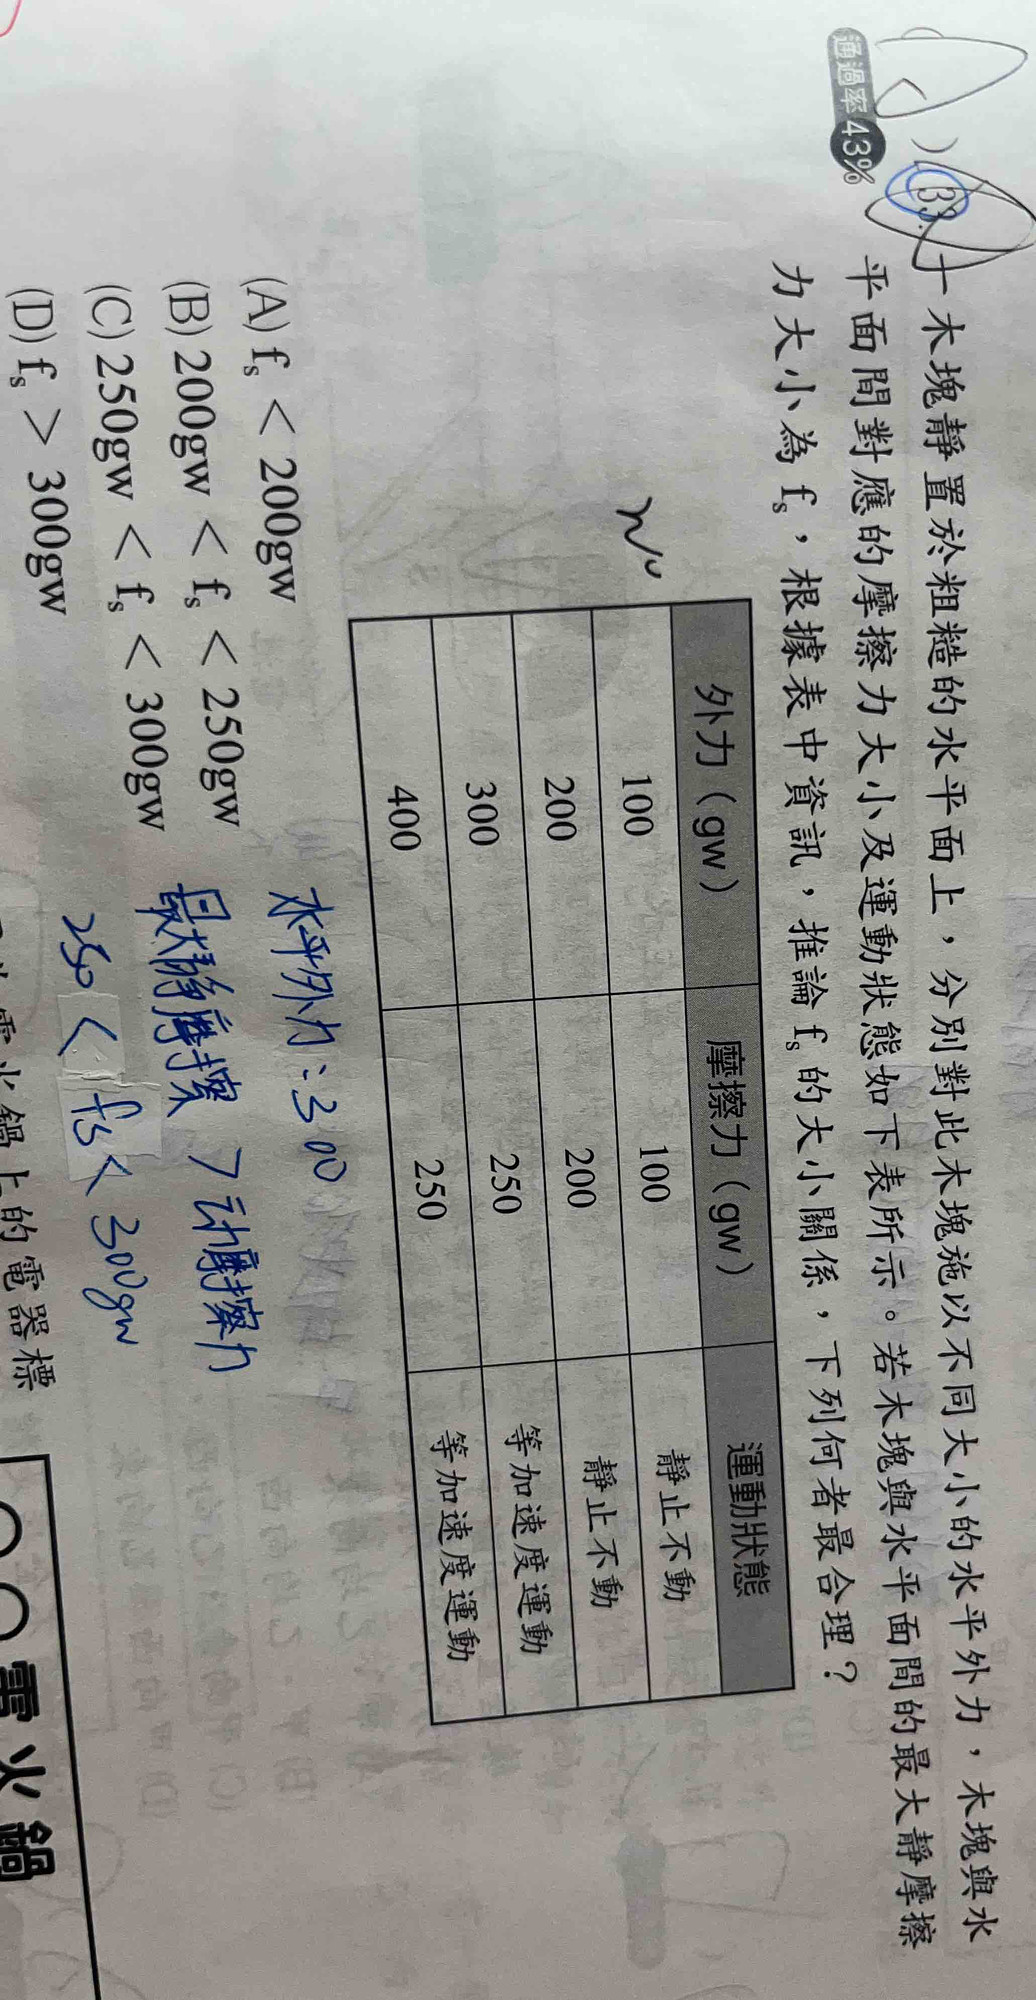 通過率43%
33.一木塊靜置於粗糙的水平面上，分別對此木塊施以不同大小的水平外力，木塊與水
平面間對應的摩擦力大小及運動狀態如下表所示。若木塊與水平面間的最大靜摩擦
力大小為 fs，根據表中資訊，推論 fs 的大小關係，下列何者最合理？
外力（gw） 摩擦力（gw） 運動狀態
100 100 靜止不動
200 200 靜止不動
300 250 等加速度運動
400 250 等加速度運動
(A) fs < 200gw
(B) 200gw < fs < 250gw
(C) 250gw < fs < 300gw
(D) fs > 300gw
水平外力：300
最大靜摩擦 > 动摩擦力
250 < fs < 300gw
火鍋上的電器標
○○電火鍋